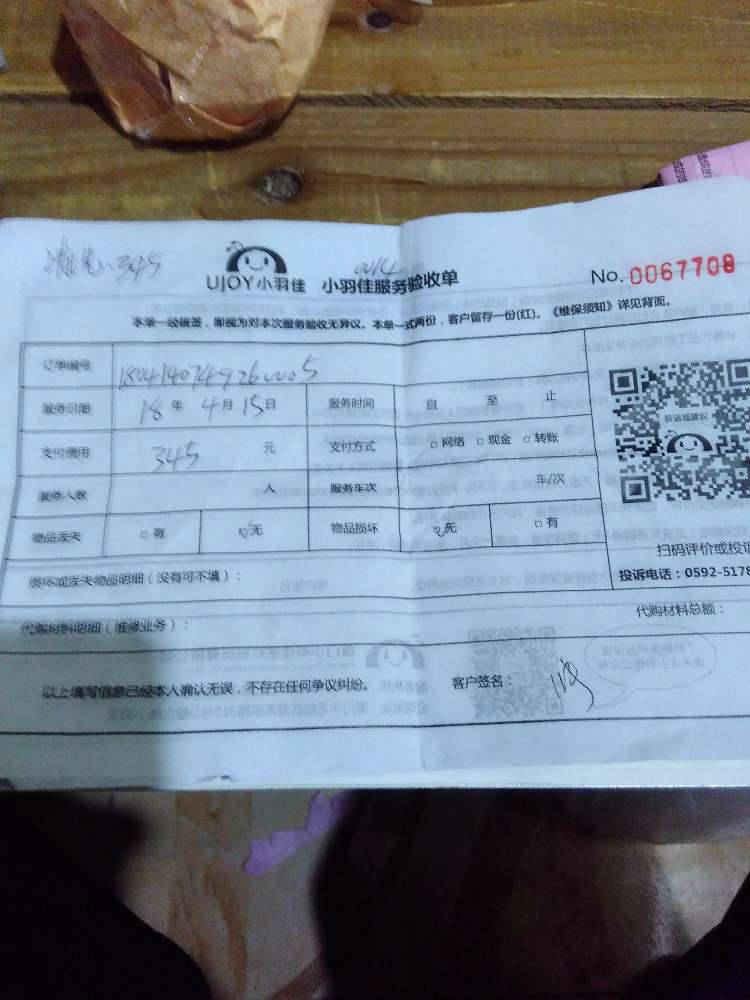 345 0014
UJOY小羽佳 小羽佳服务验收单 No. 0067708
本单一经确签，即视为对本次服务验收无异议。本单一式两份，客户留存一份(红)。《维保须知》详见背面。
订单编号
服务日期 18 年 4 月 15 日 服务时间 自 至 止
支付费用 345 元 支付方式 □ 网络 □ 现金 □ 转账
服务人数 人 服务车次 车/次
物品丢失 □ 有 ☑ 无 物品损坏 ☑ 无 □ 有
投诉或建议
扫码评价或投诉
损坏或丢失物品明细（没有可不填）：
投诉电话：0592-5178
代购材料明细（维修业务）：
代购材料总额：
以上填写信息已经本人确认无误，不存在任何争议纠纷。 客户签名：